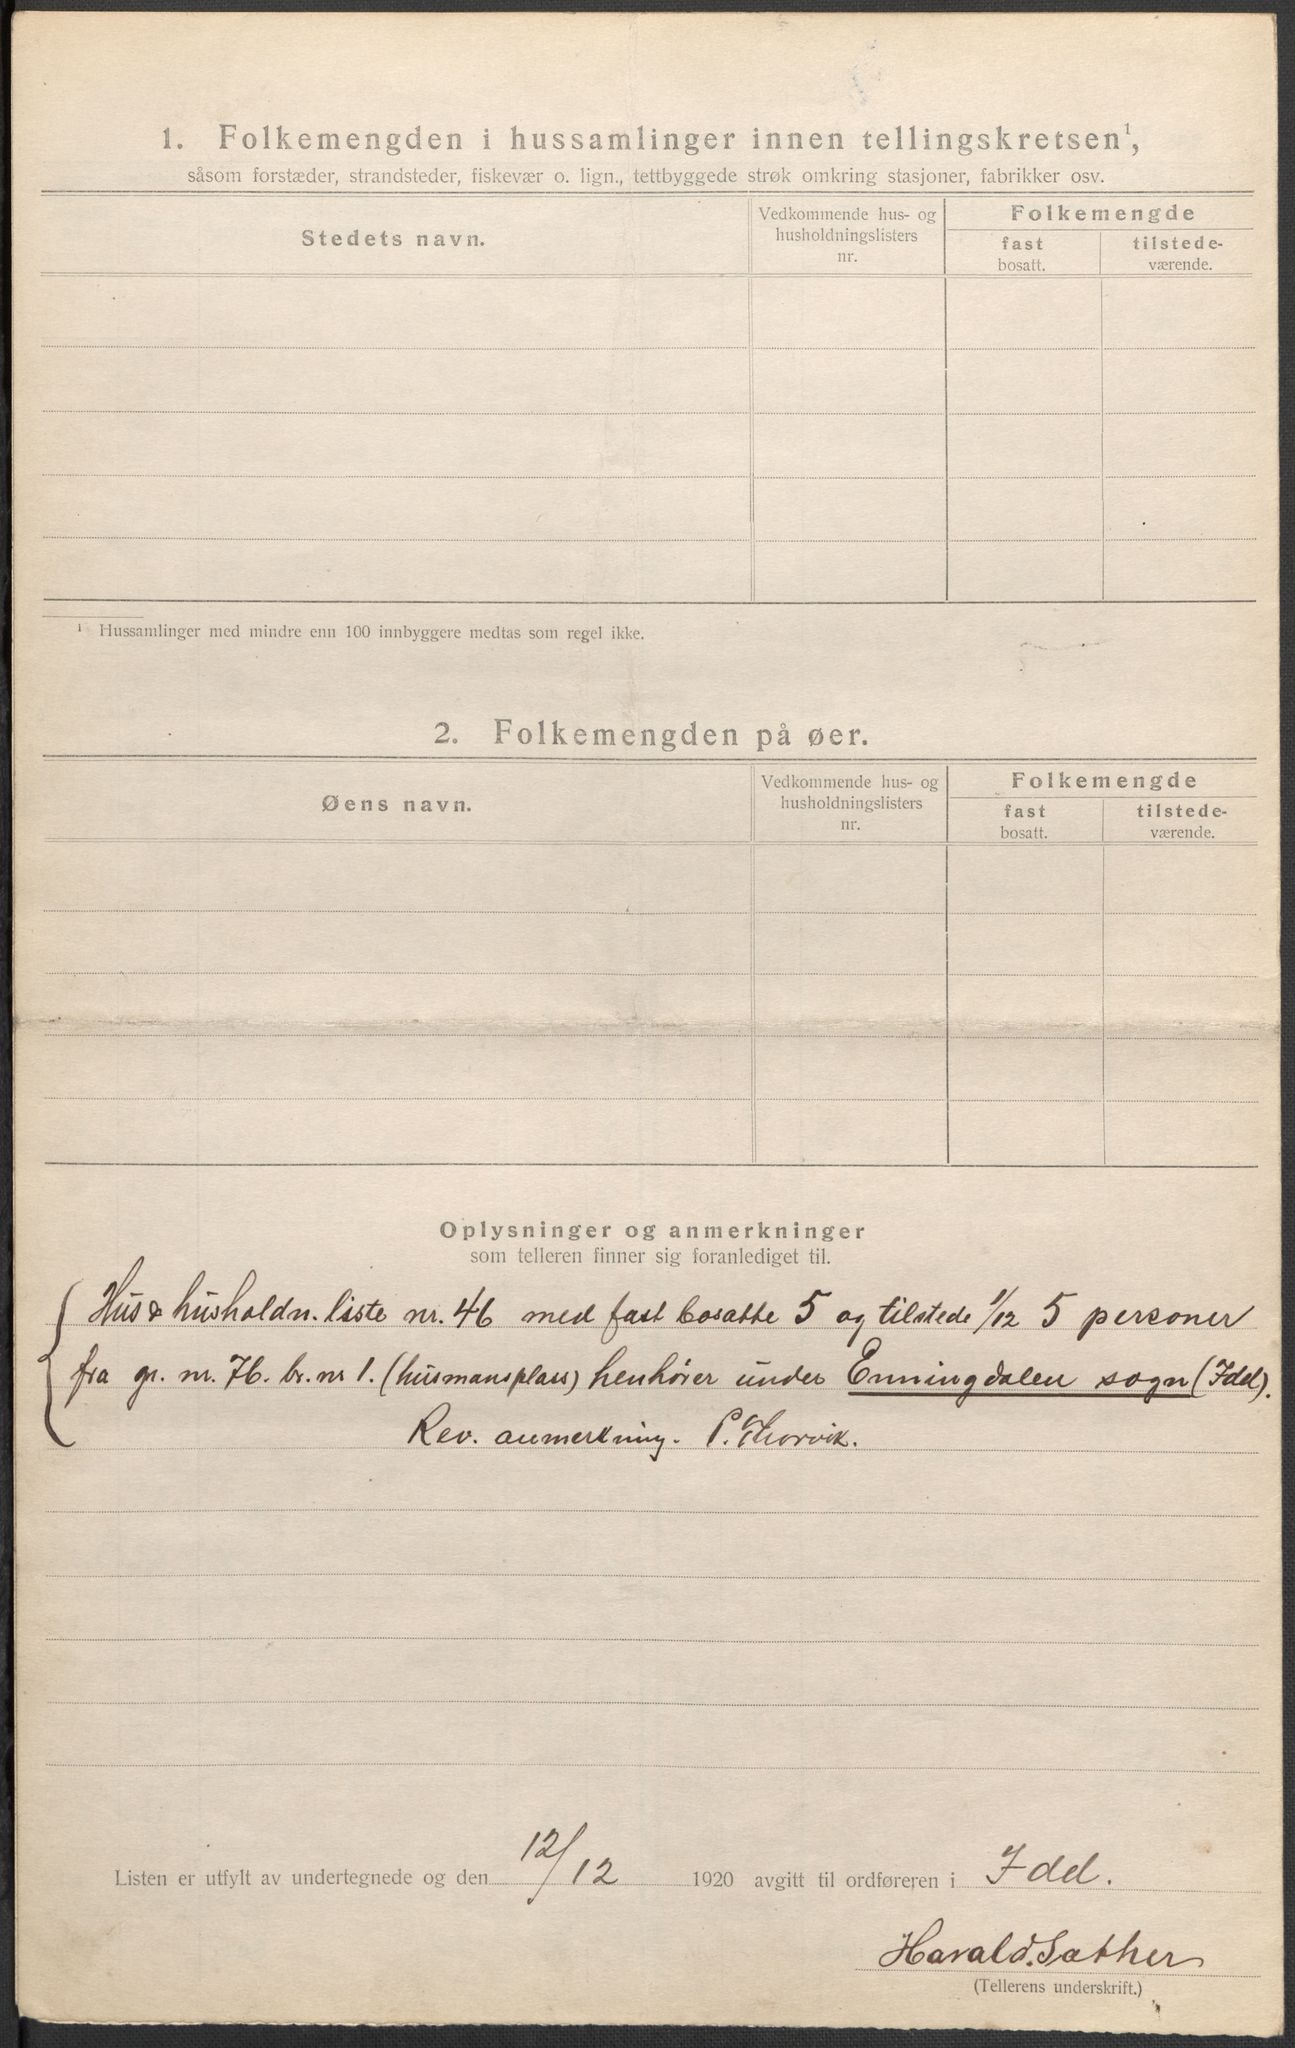 1. Folkemengden i hussamlinger innen tellingskretsen¹,
såsom forstæder, strandsteder, fiskevær o. lign., tettbyggede strøk omkring stasjoner, fabrikker osv.
Stedets navn.
Vedkommende hus- og
husholdningslisters
nr.
Folkemengde
fast
bosatt.
tilstede-
værende.
¹ Hussamlinger med mindre enn 100 innbyggere medtas som regel ikke.
2. Folkemengden på øer.
Øens navn.
Vedkommende hus- og
husholdningslisters
nr.
Folkemengde
fast
bosatt.
tilstede-
værende.
Oplysninger og anmerkninger
som telleren finner sig foranlediget til.
Hus & husholdn. liste nr. 46 med fast bosatte 5 og tilstede 1/12 5 personer
fra gr. nr. 76. br. nr 1. (husmansplass) henhører under Enningdalen sogn (Idd).
Rev. anmerkning. P. Thorvik.
Listen er utfylt av undertegnede og den 12/12 1920 avgitt til ordføreren i Idd.
Harald Sæther
(Tellerens underskrift.)